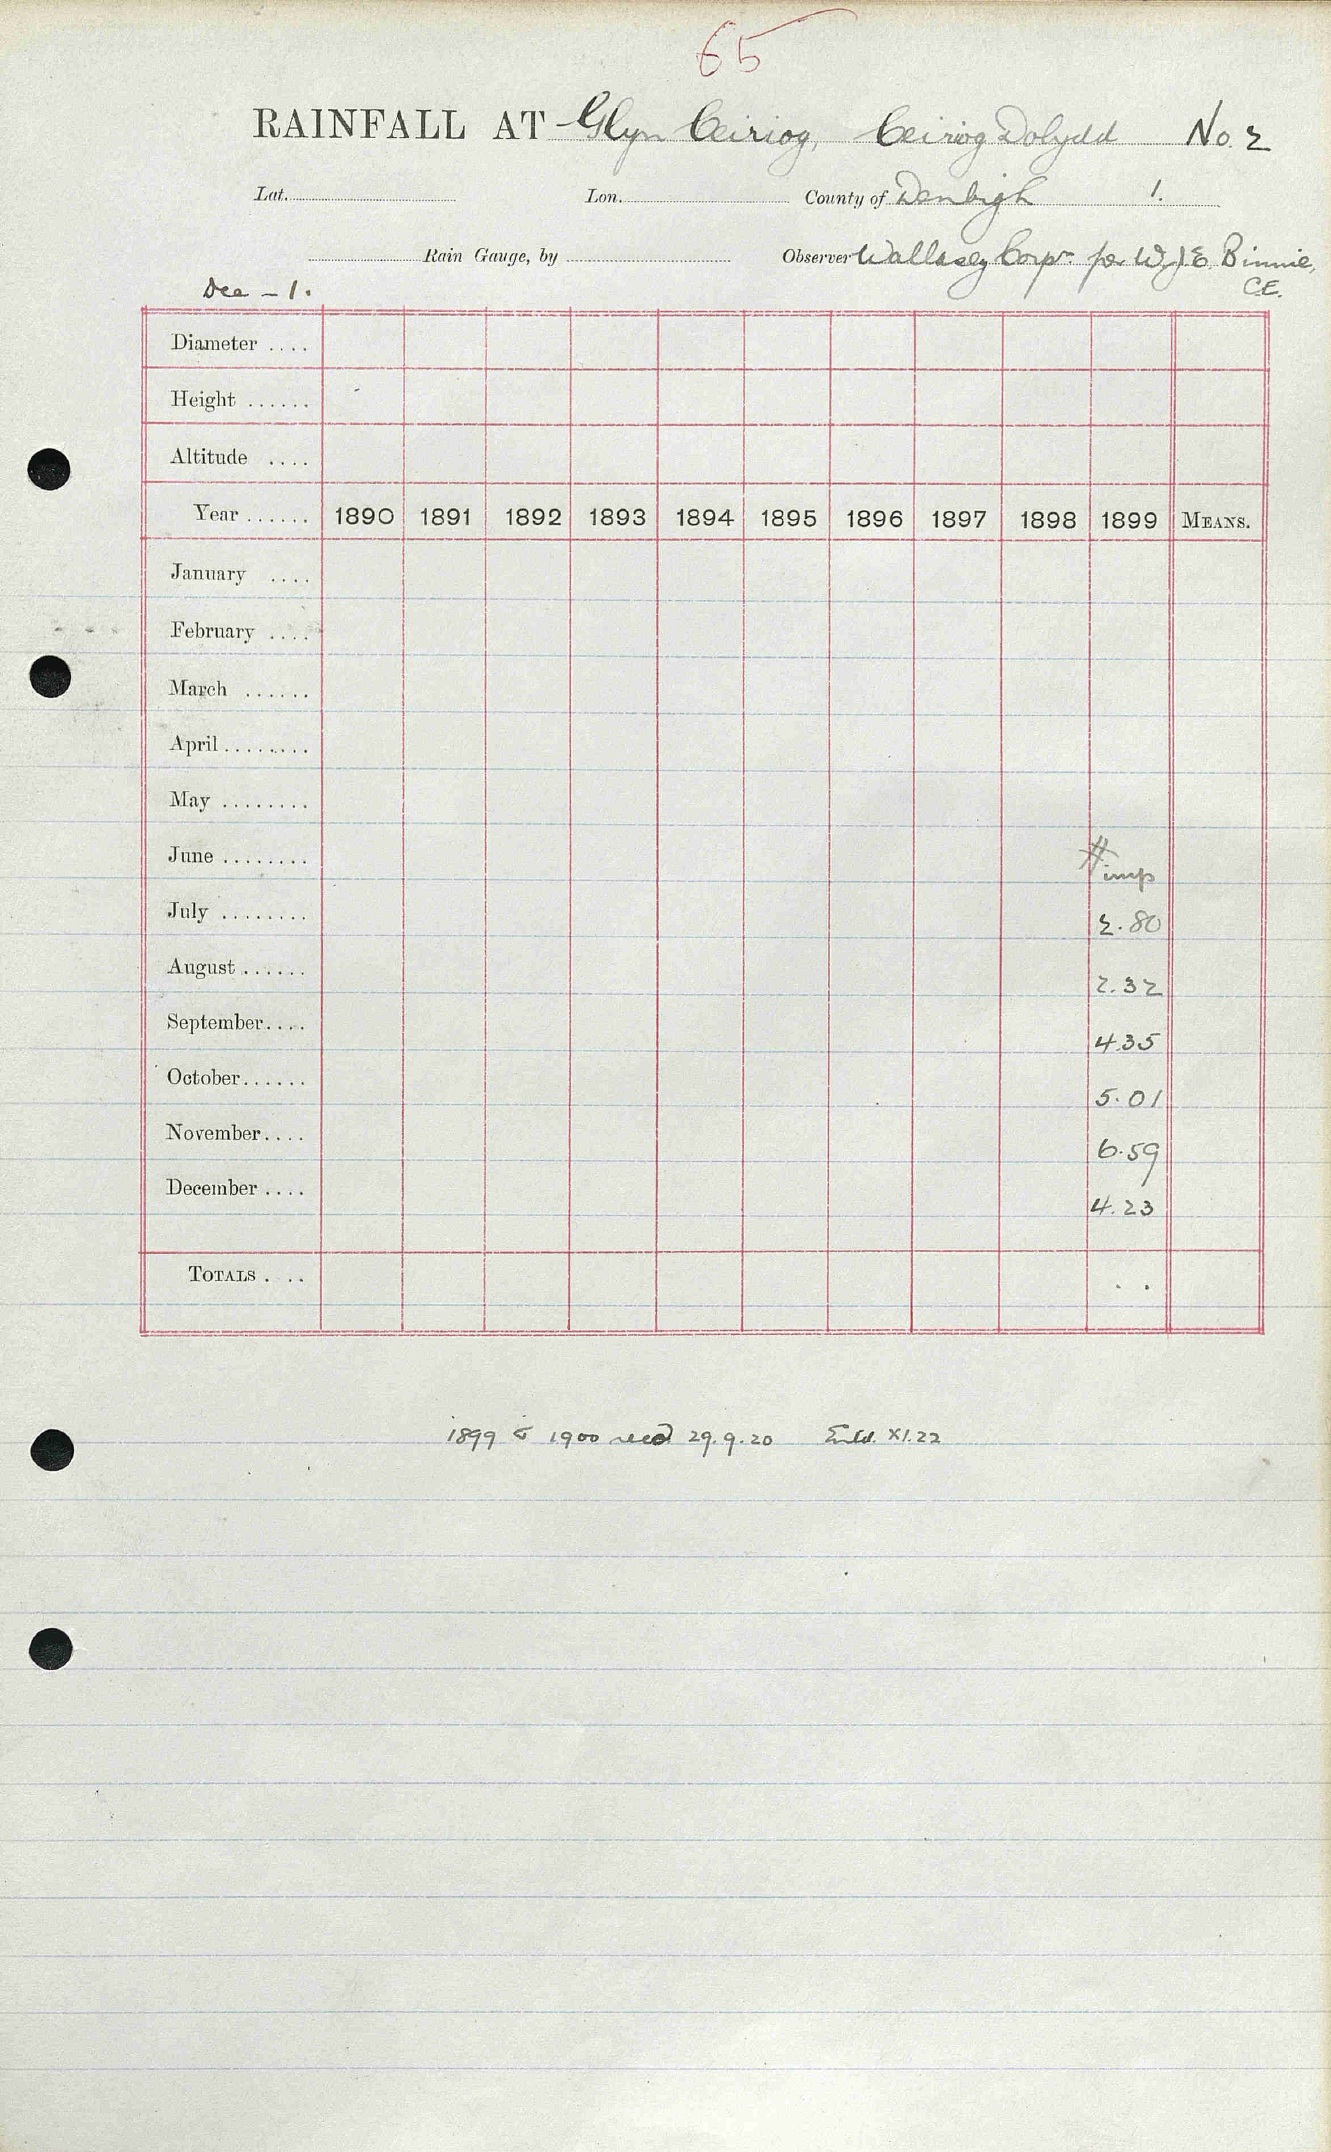 65
RAINFALL AT Glyn Ceiriog, Ceiriog Dolydd No. 2
Lat. Lon. County of Denbigh 1.
Rain Gauge, by Observer Wallasey Corpn. per W.J.E. Binnie,
C.E.
Dec - 1.
Diameter ....
Height ......
Altitude ....
Year ...... 1890 1891 1892 1893 1894 1895 1896 1897 1898 1899 MEANS.
January ....
February ....
March ......
April ........
May ........
June ........ # imp
July ........ 2.80
August ...... 2.32
September.... 4.35
October...... 5.01
November.... 6.59
December .... 4.23
TOTALS . ..  . .
1899 & 1900 recd 29.9.20 XI.22